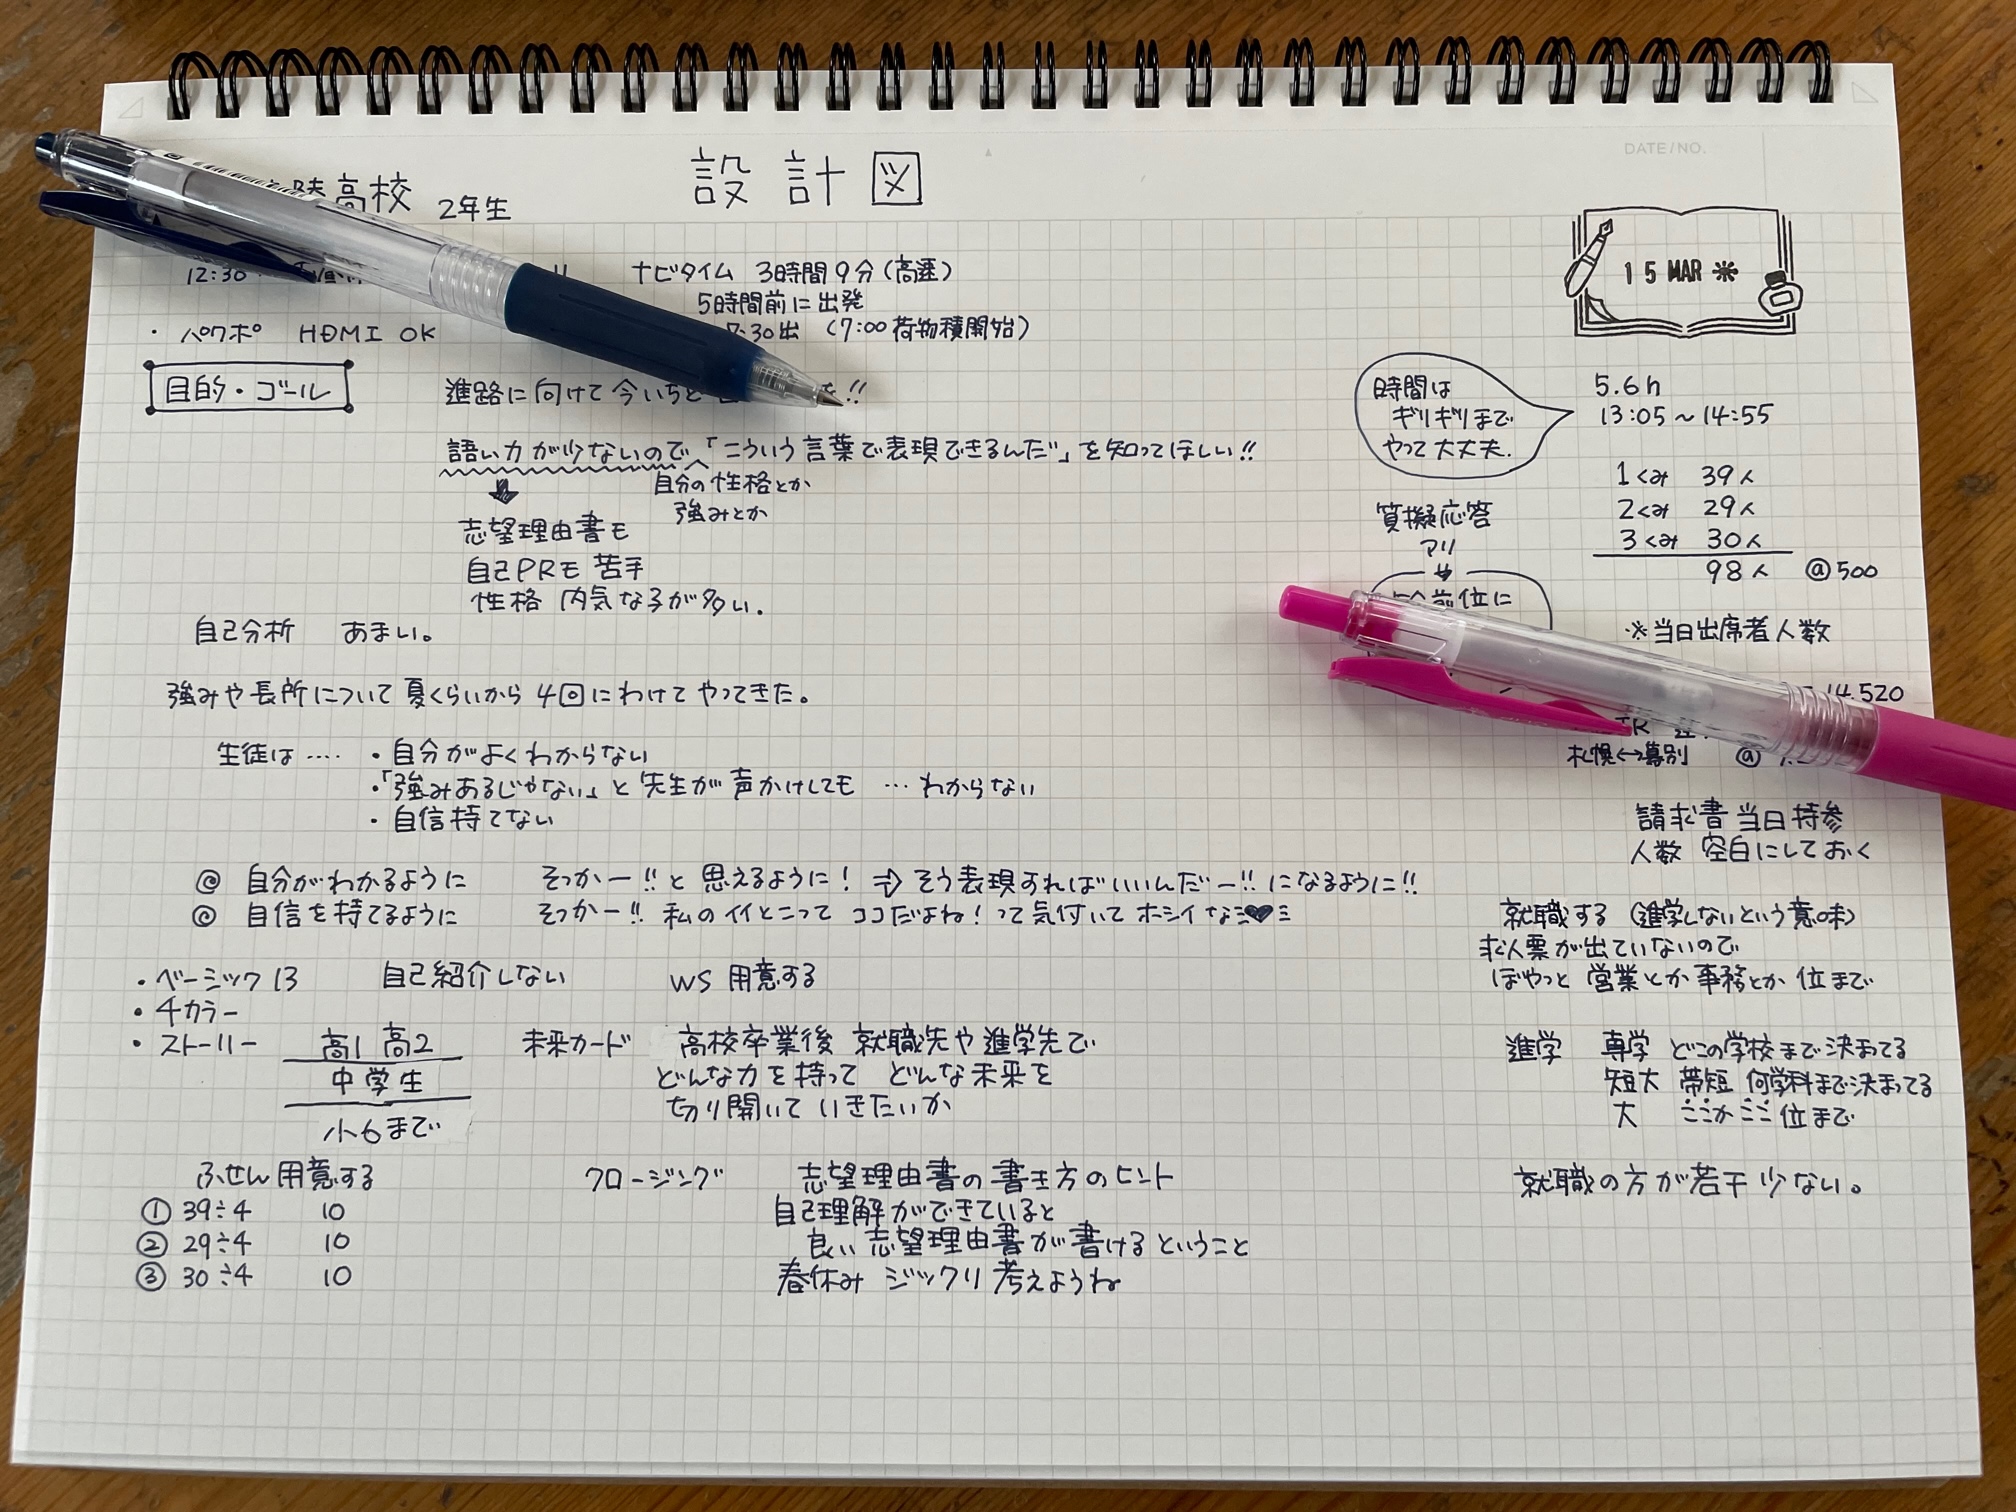 設計図
高校 2年生
DATE/NO.
15 MAR
12:30
ナビタイム 3時間9分(高速)
5時間前に出発
7:30出 (7:00荷物積開始)
・パワポ HDMI OK
目的・ゴール
進路に向けて今いちど
!!
語い力が少ないので「こういう言葉で表現できるんだ」を知ってほしい!!
自分の性格とか
強みとか
志望理由書も
自己PRも苦手
性格 内気な子が多い.
自己分析 あまい。
強みや長所について夏くらいから4回にわけてやってきた。
生徒は‥‥ ・自分がよくわからない
・「強みあるじゃない」と先生が声かけしても …わからない
・自信持てない
◎ 自分がわかるように そっかー!!と思えるように! ⇒ そう表現すればいいんだー!!になるように!!
◎ 自信を持てるように そっかー!! 私のイイとこってココだよね!って気付いてホシイな♥
・ベーシック13 自己紹介しない WS 用意する
・4カラー
・ストーリー
高1 高2
中学生
小6まで
未来カード 高校卒業後 就職先や進学先で
どんな力を持って どんな未来を
切り開いていきたいか
ふせん用意する
① 39÷4 10
② 29÷4 10
③ 30÷4 10
クロージング 志望理由書の書き方のヒント
自己理解ができていると
良い志望理由書が書けるということ
春休み ジックリ考えようね
時間は
ギリギリまで
やって大丈夫.
5.6h
13:05〜14:55
1くみ 39人
2くみ 29人
3くみ 30人
98人 @500
質擬応答
アリ
前位に
※当日出席者人数
14.520
札幌↔幕別 @
請求書当日持参
人数 空白にしておく
就職する(進学しないという意味)
求人票が出ていないので
ぼやっと営業とか事務とか位まで
進学 専学 どこの学校まで決まってる
短大 帯短 何学科まで決まってる
大 ここかここ位まで
就職の方が若干少ない。